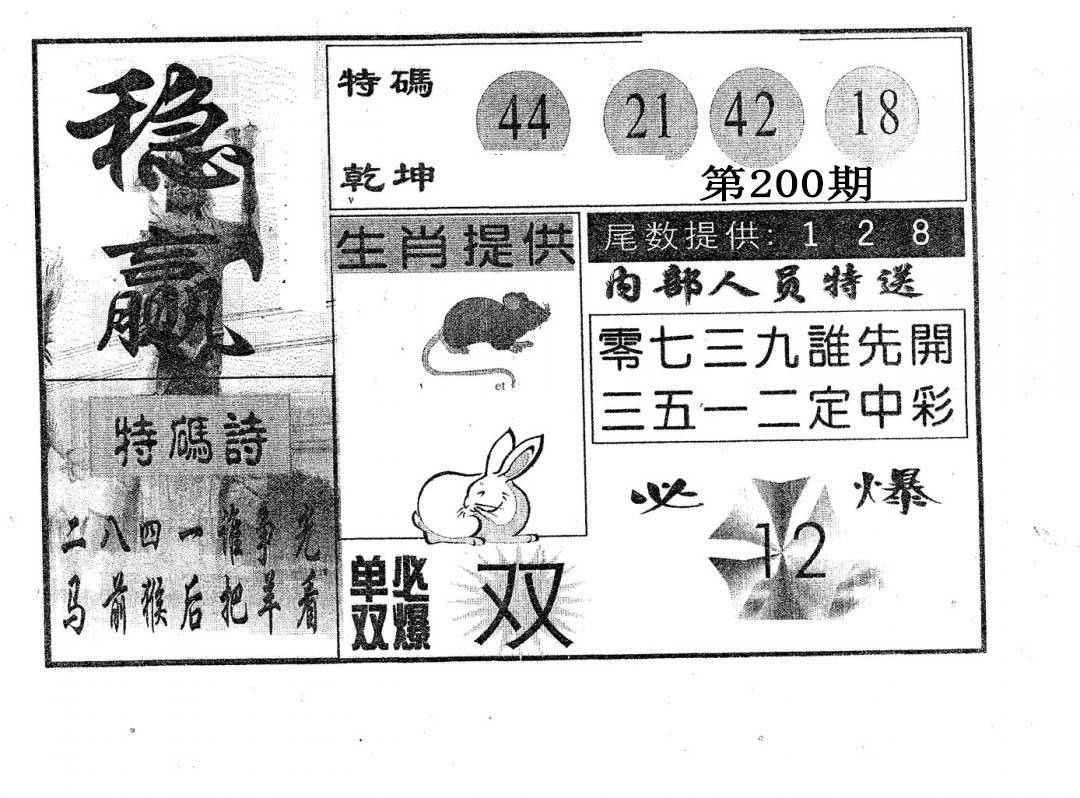 稳赢
特碼 44 21 42 18
乾坤
第200期
生肖提供
尾数提供: 1 2 8
内部人员特送
零七三九誰先開
三五一二定中彩
特碼詩
二八四一谁争光
马前猴后把羊看
必 12 爆
单双必爆 双